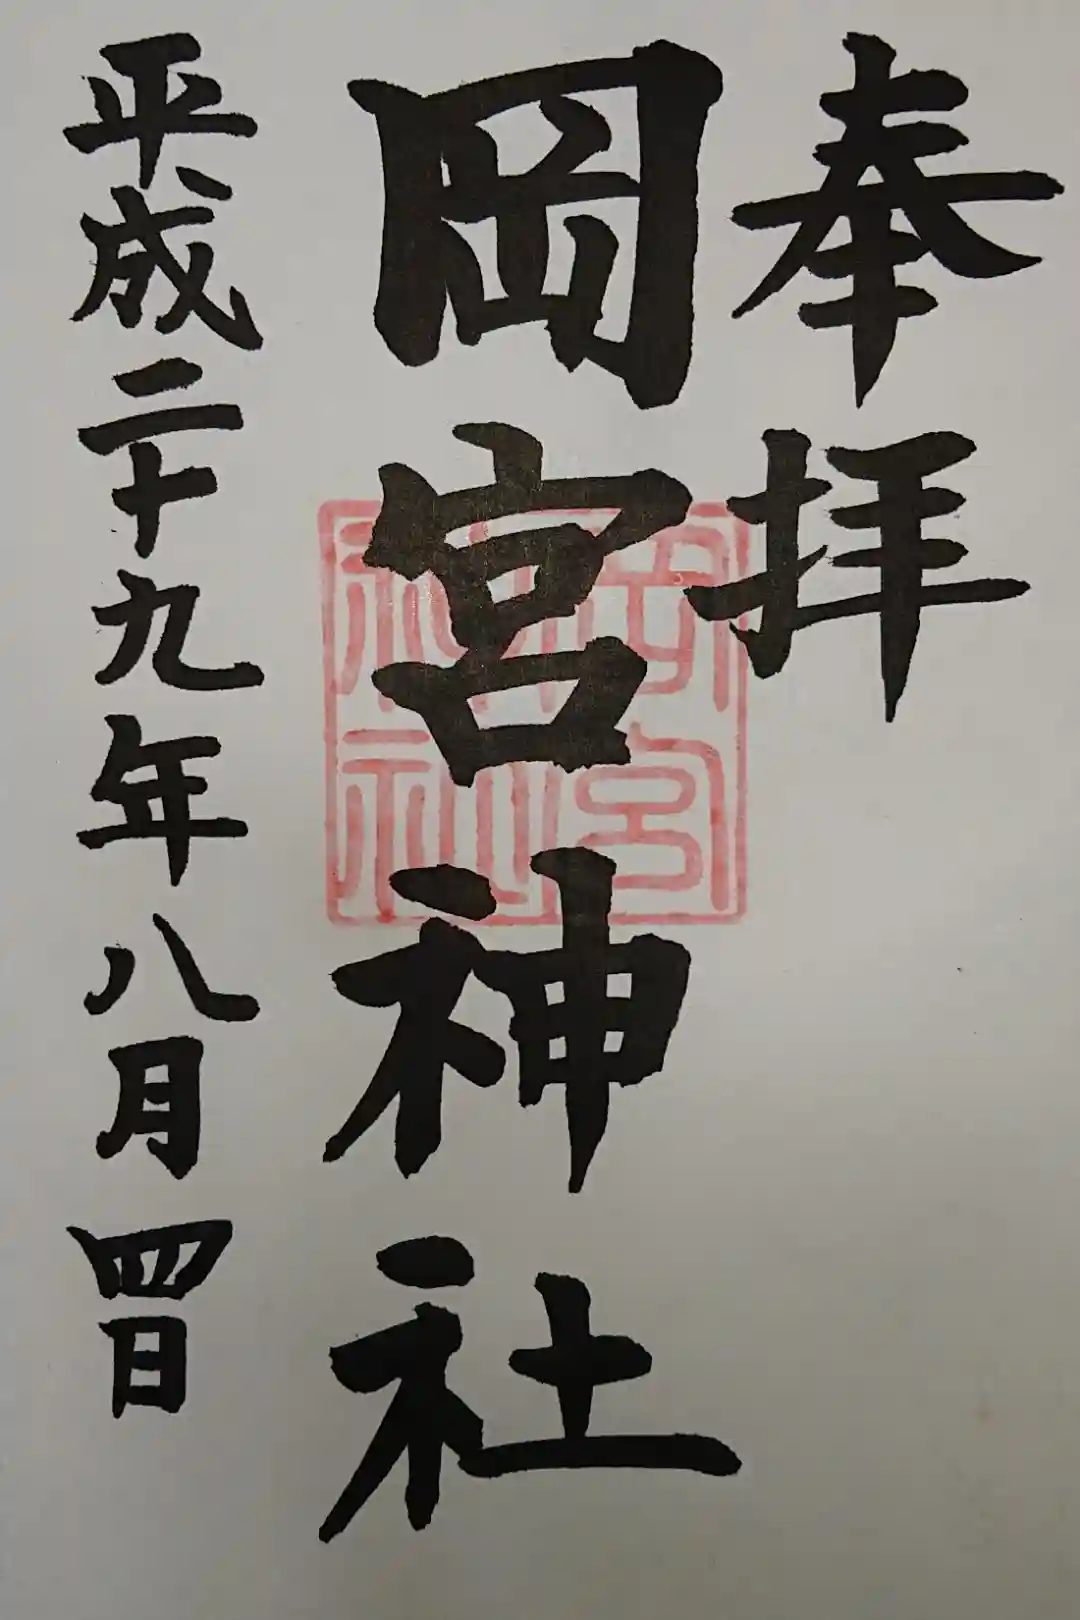 奉拝
岡宮神社
平成二十九年八月四日
岡宮
神社